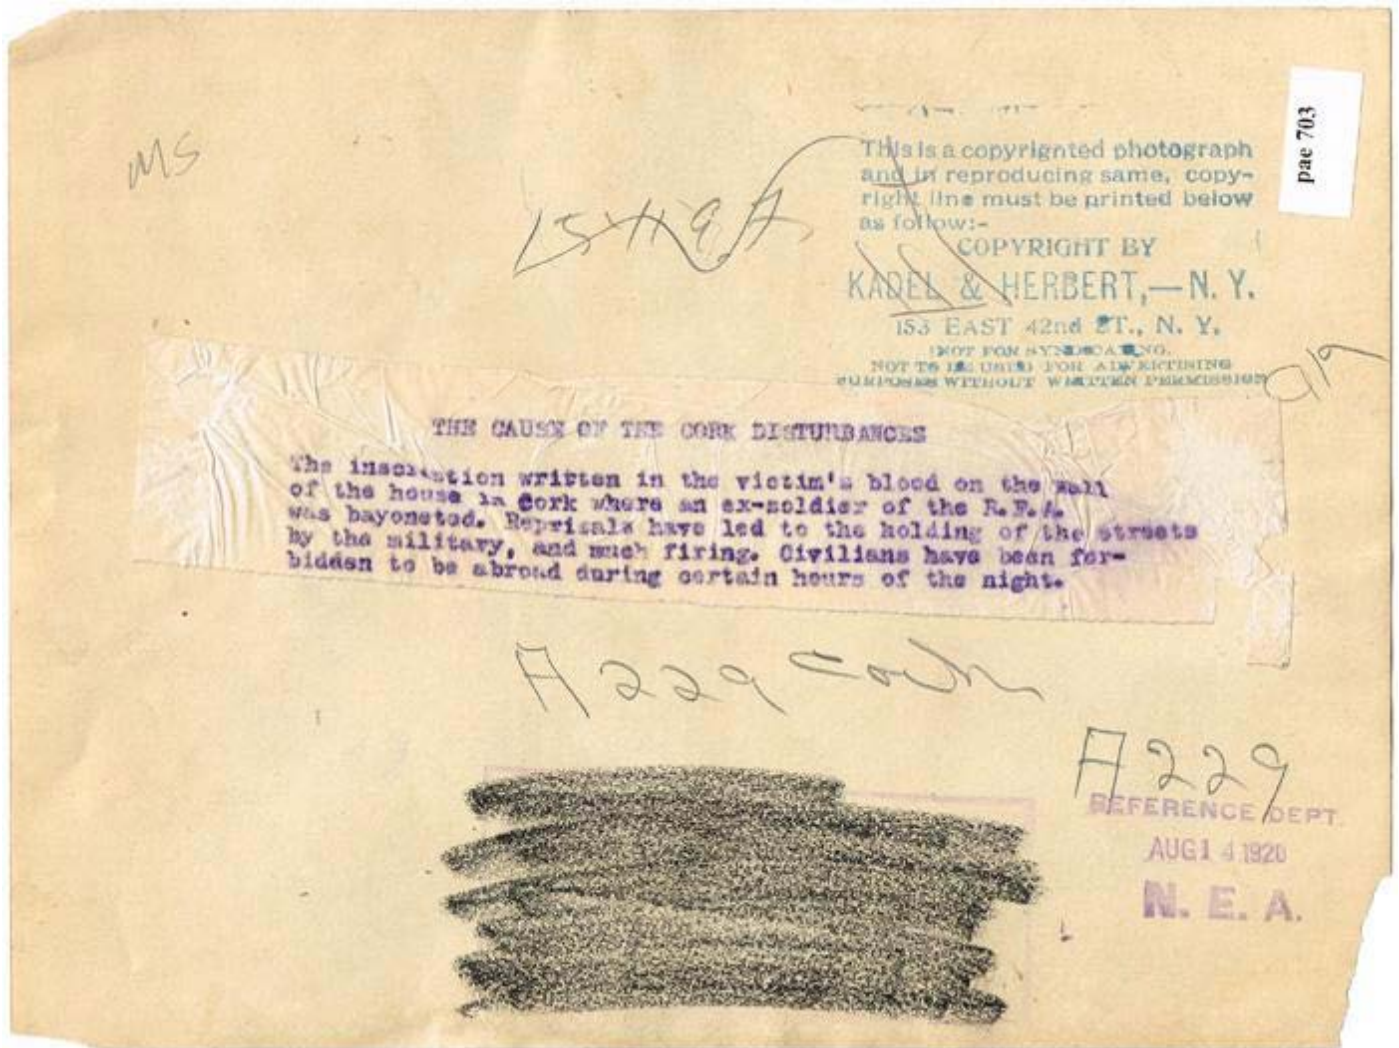 MS
pae 703
This is a copyrighted photograph
and in reproducing same, copy-
right line must be printed below
as follow:-
COPYRIGHT BY
KADEL & HERBERT,—N. Y.
153 EAST 42nd ST., N. Y.
NOT FOR SYNDICATING.
NOT TO BE USED FOR ADVERTISING
PURPOSES WITHOUT WRITTEN PERMISSION
THE CAUSE OF THE CORK DISTURBANCES
The inscription written in the victim's blood on the wall
of the house in Cork where an ex-soldier of the R.F.A.
was bayoneted. Reprisals have led to the holding of the streets
by the military, and much firing. Civilians have been for-
bidden to be abroad during certain hours of the night.
A229 Cork
A229
REFERENCE DEPT.
AUG 14 1920
N. E. A.